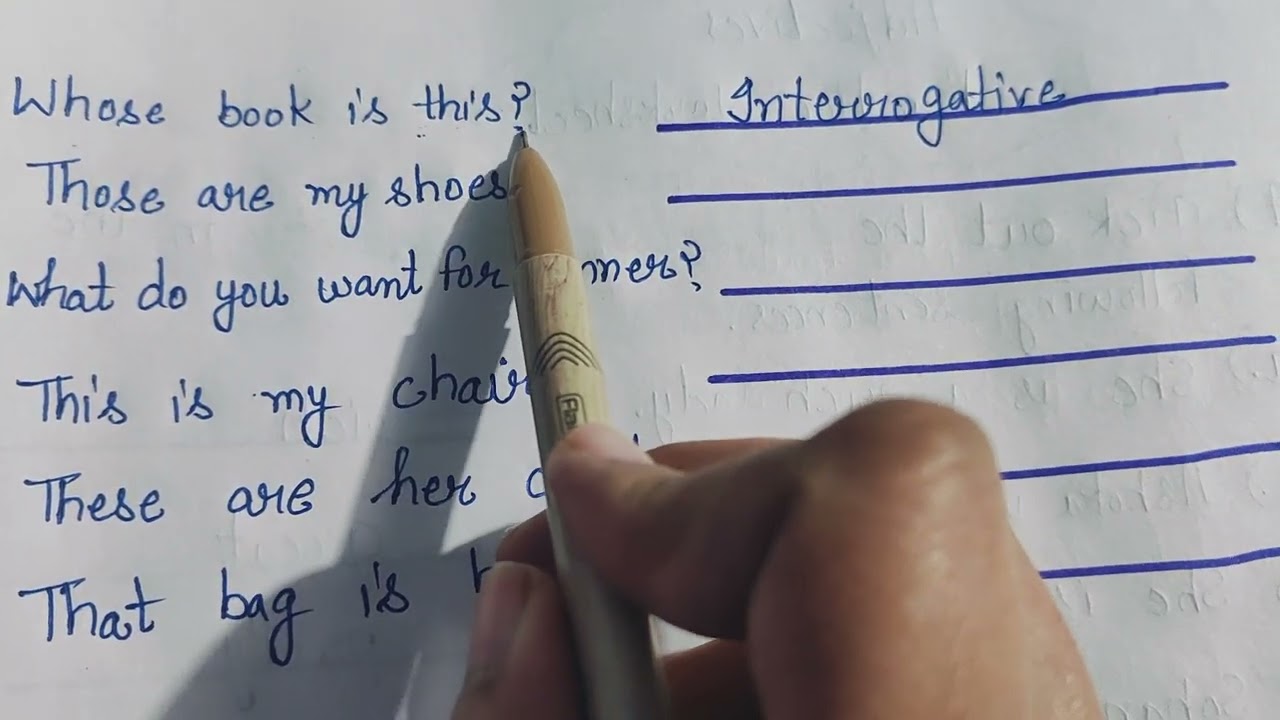 Whose book is this? Interrogative
Those are my shoes
What do you want for mer?
This is my chair
These are her
That bag is